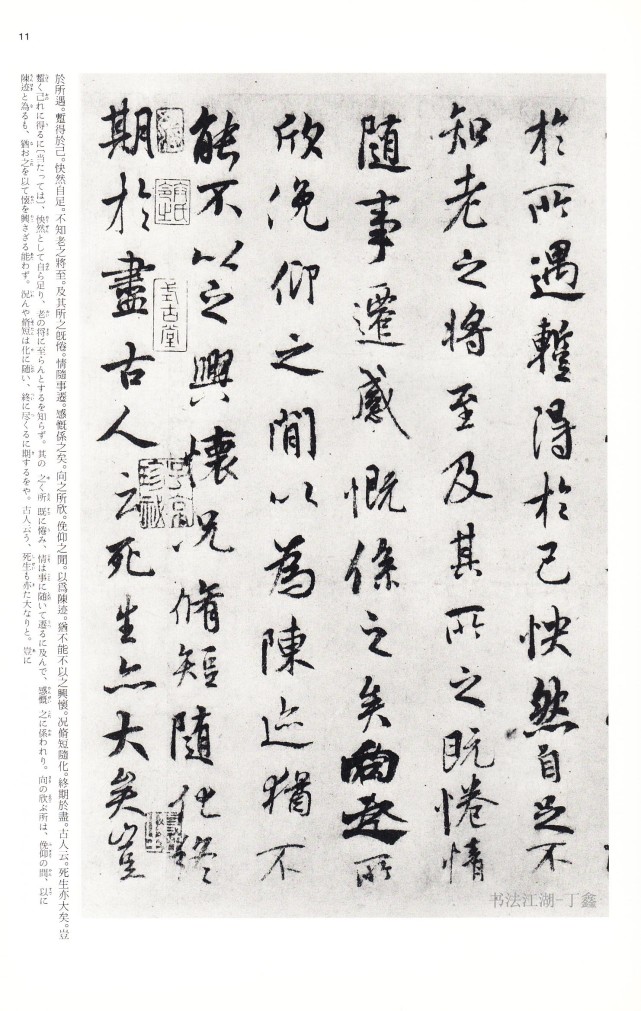 11
於所遇蹔得於己怏然自足不
知老之將至及其所之既惓情
隨事遷感慨係之矣向之所
欣俛仰之閒以為陳迹猶不
能不以之興懷況脩短隨化終
期於盡古人云死生亦大矣豈
書法江湖-丁鑫
於所遇。蹔得於己。怏然自足。不知老之將至。及其所之旣惓。情隨事遷。感慨係之矣。向之所欣。俛仰之閒。以爲陳迹。猶不能不以之興懷。況脩短隨化。終期於盡。古人云。死生亦大矣。豈
蹔く己れに得るに〔当たっては〕、怏然として自ら足り、老の将に至らんとするを知らず。其の之く所既に惓み、情は事に随いて遷るに及んで、感慨之に係われり。向の欣ぶ所は、俛仰の間、以に
陳迹と為るも、猶お之を以て懐を興さざる能わず。況んや脩短は化に随い、終に尽くるに期するをや。古人云う、死生も亦た大なりと。豈に